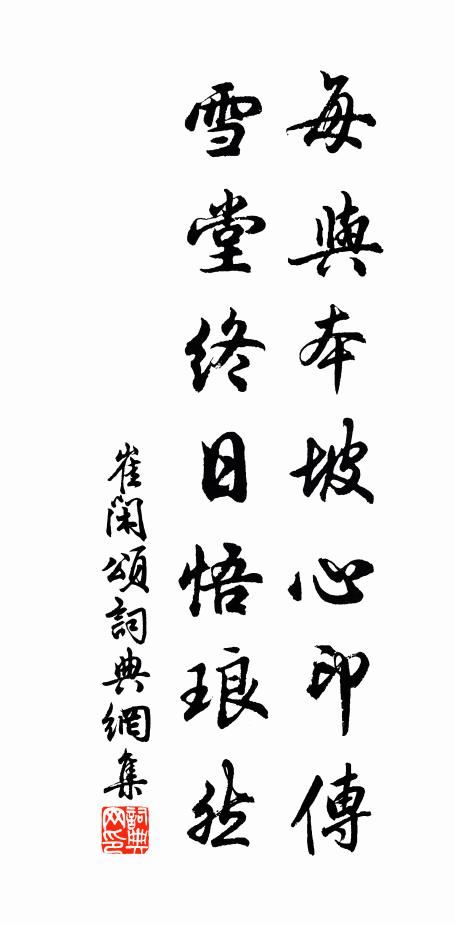 每與本坡心印傳
雪堂終日悟琅然
崔閑頌詞典網集
詞典网印